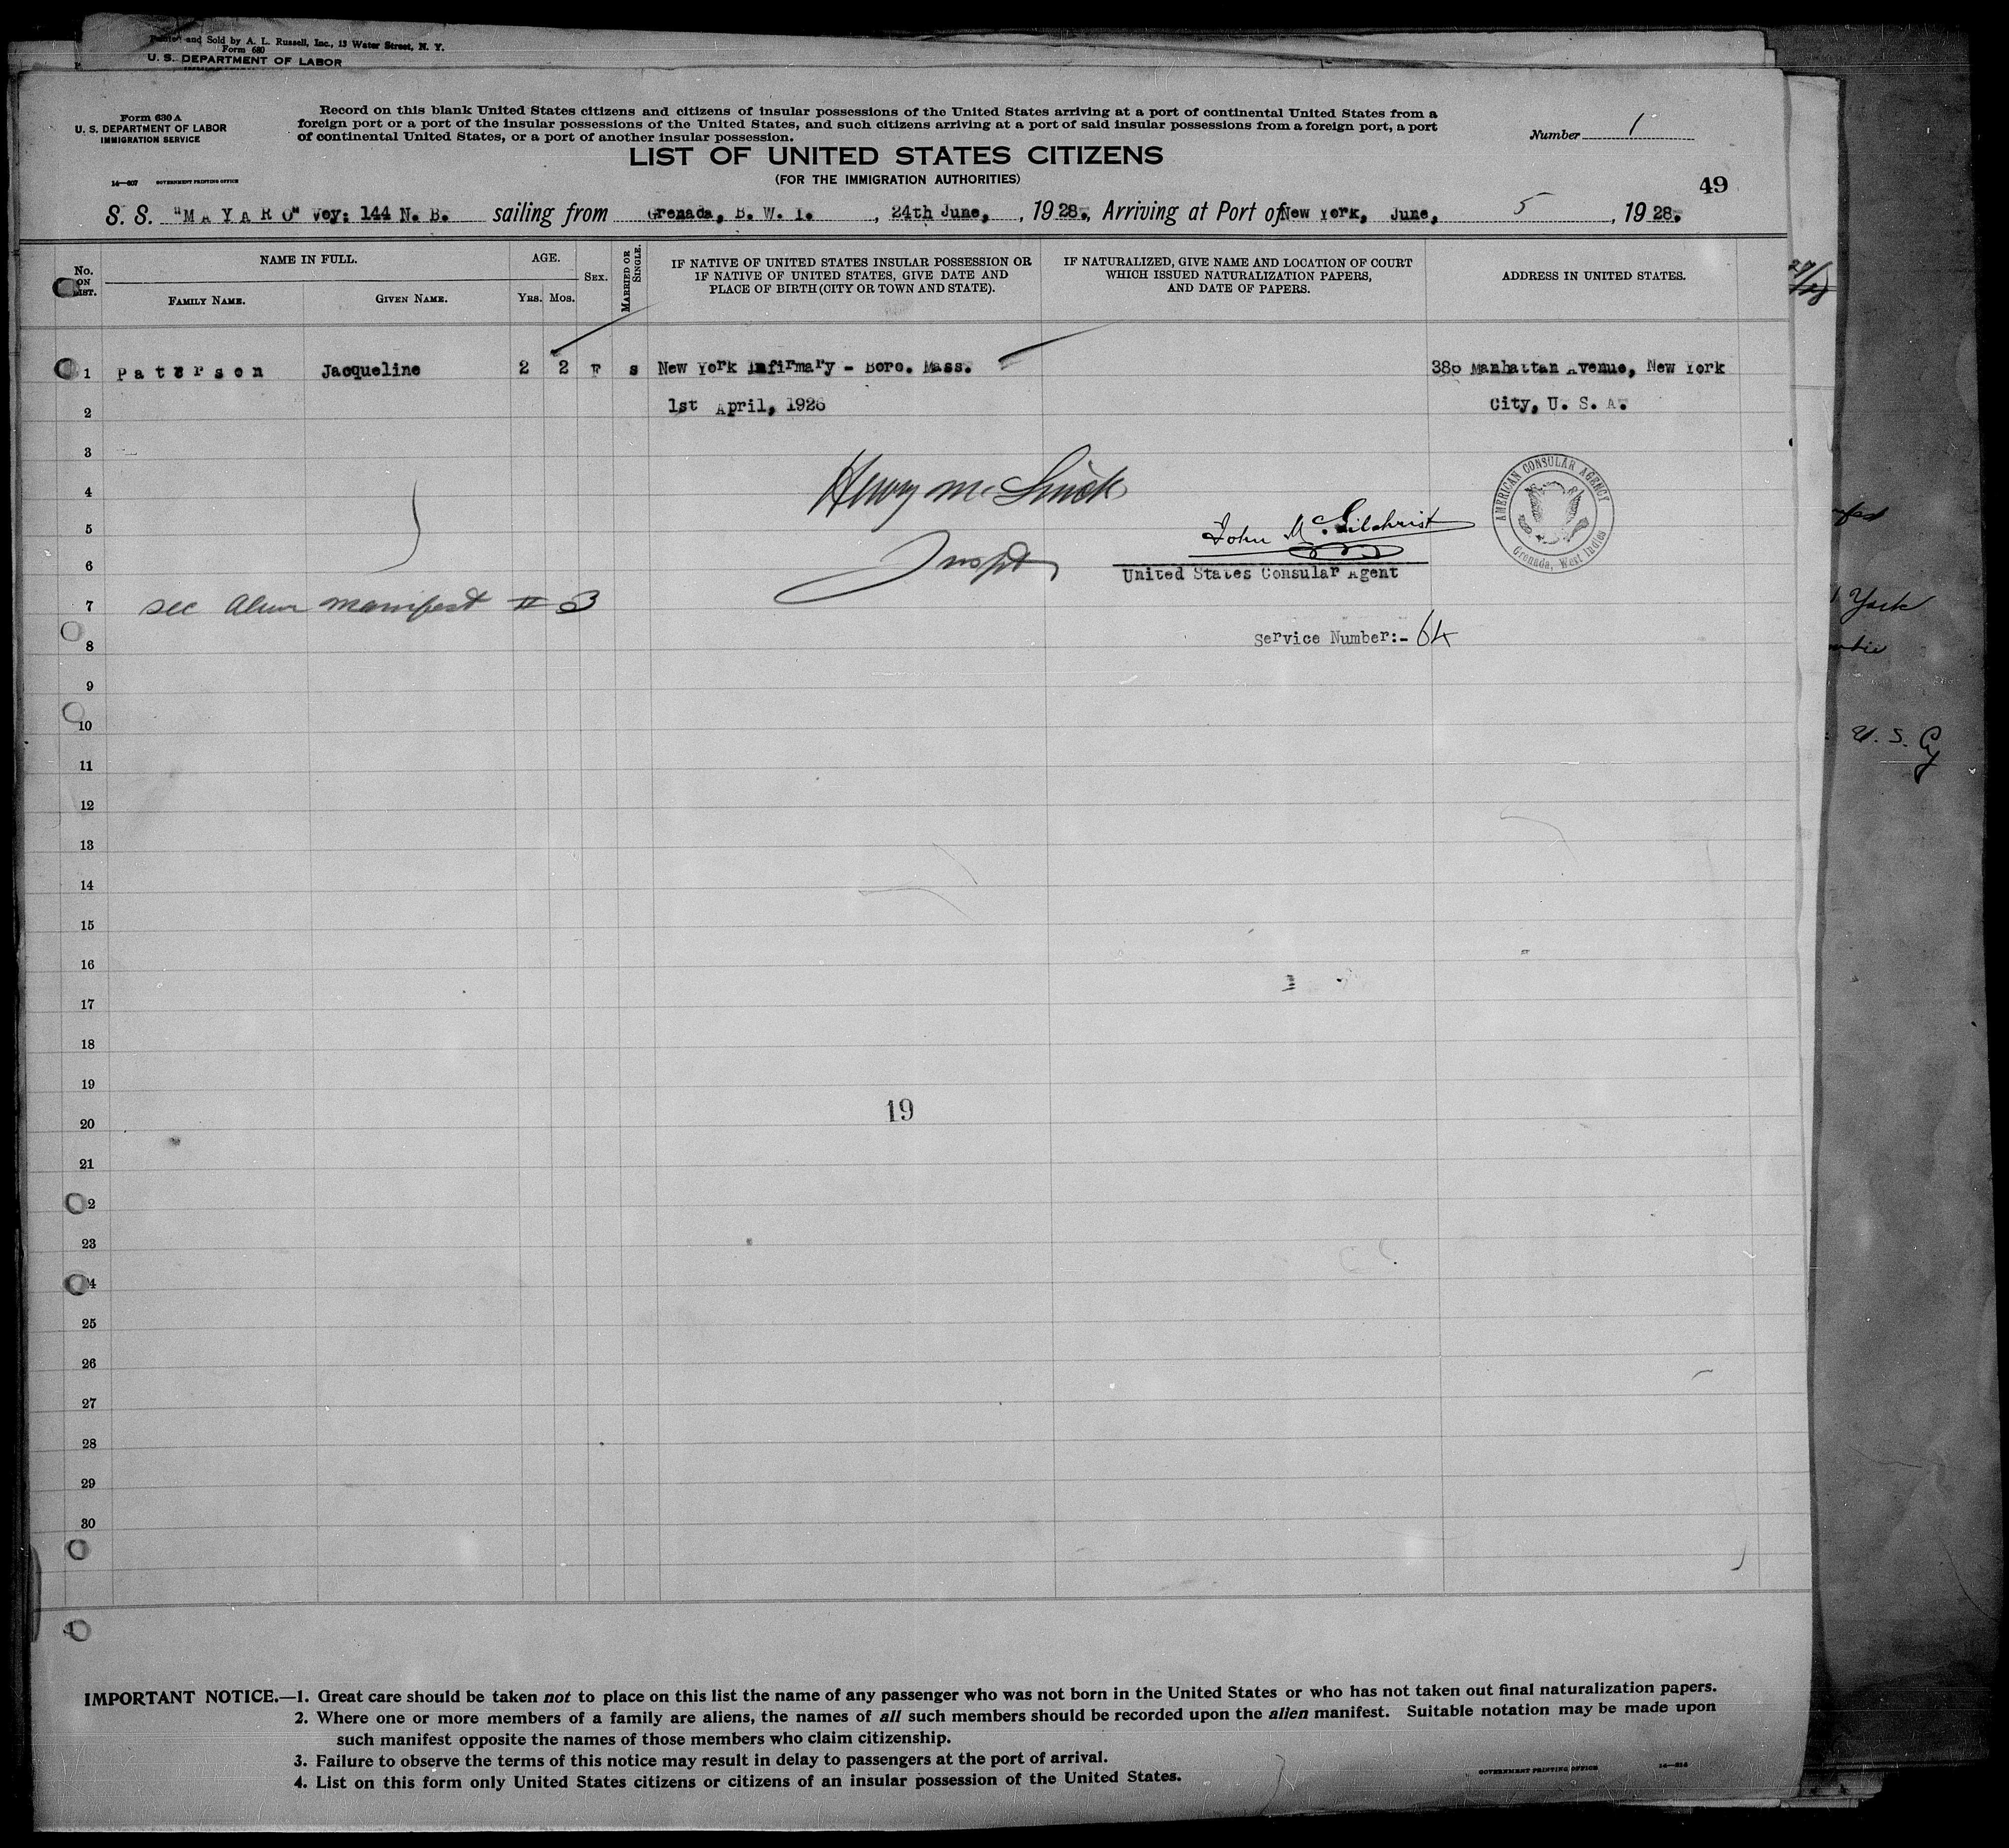 Printed and Sold by A. L. Russell, Inc., 13 Water Street, N. Y.
Form 680
U. S. DEPARTMENT OF LABOR
Form 630 A
U. S. DEPARTMENT OF LABOR
IMMIGRATION SERVICE
14—607 GOVERNMENT PRINTING OFFICE
Record on this blank United States citizens and citizens of insular possessions of the United States arriving at a port of continental United States from a
foreign port or a port of the insular possessions of the United States, and such citizens arriving at a port of said insular possessions from a foreign port, a port
of continental United States, or a port of another insular possession.
Number 1
LIST OF UNITED STATES CITIZENS
(FOR THE IMMIGRATION AUTHORITIES)
49
S. S. "MAYARO" Voy: 144 N. B. sailing from Grenada, B. W. I. , 24th June, , 1928., Arriving at Port of New York, June, 5 , 1928.
No. ON LIST.
NAME IN FULL.
FAMILY NAME.
GIVEN NAME.
AGE.
YRS. MOS.
SEX.
MARRIED OR SINGLE.
IF NATIVE OF UNITED STATES INSULAR POSSESSION OR
IF NATIVE OF UNITED STATES, GIVE DATE AND
PLACE OF BIRTH (CITY OR TOWN AND STATE).
IF NATURALIZED, GIVE NAME AND LOCATION OF COURT
WHICH ISSUED NATURALIZATION PAPERS,
AND DATE OF PAPERS.
ADDRESS IN UNITED STATES.
1 Paterson Jacqueline 2 2 F s New York Infirmary - Boro. Mass. 386 Manhattan Avenue, New York
2 1st April, 1926 City, U. S. A.
3
4 Henry
5 John McGilchrist
AMERICAN CONSULAR AGENCY
Grenada, West Indies
6 Inspt United States Consular Agent
7 see Alien manifest # 3
Service Number:- 64
8
9
10
11
12
13
14
15
16
17
18
19
19
20
21
2
23
4
25
26
27
28
29
30
York
U. S. Cy
IMPORTANT NOTICE.—1. Great care should be taken not to place on this list the name of any passenger who was not born in the United States or who has not taken out final naturalization papers.
2. Where one or more members of a family are aliens, the names of all such members should be recorded upon the alien manifest. Suitable notation may be made upon
such manifest opposite the names of those members who claim citizenship.
3. Failure to observe the terms of this notice may result in delay to passengers at the port of arrival.
4. List on this form only United States citizens or citizens of an insular possession of the United States.
GOVERNMENT PRINTING OFFICE